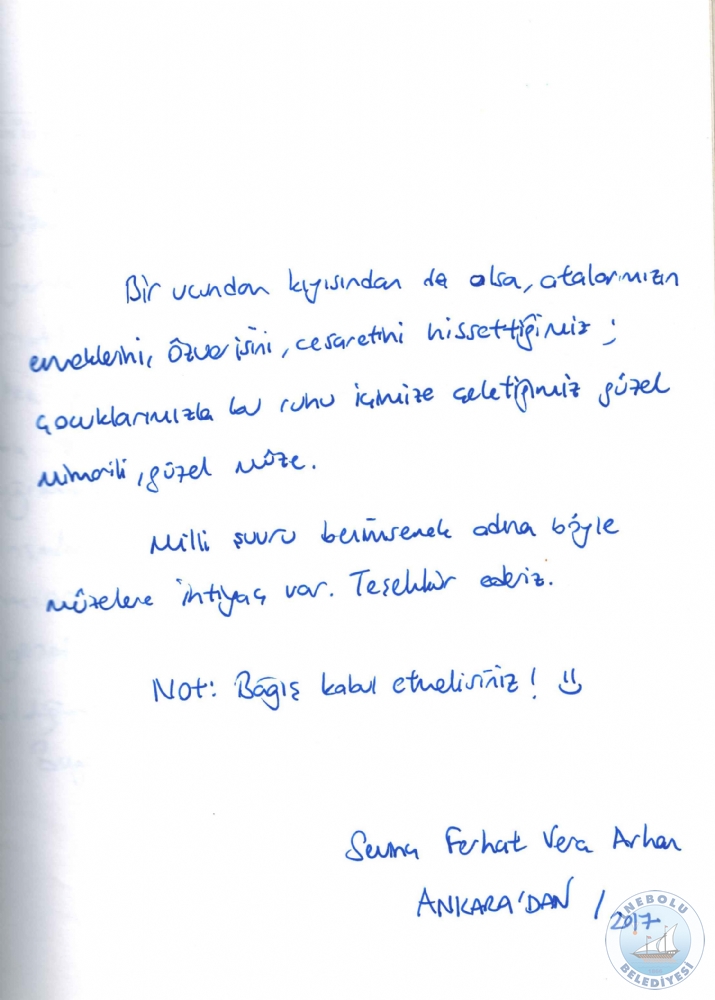 Bir ucundan kıyısından da olsa, atalarımızın
emeklerini, özverisini, cesaretini hissettiğimiz ;
çocuklarımızla bu ruhu içimize çektiğimiz güzel
mimarili, güzel müze.
Milli şuuru benimsemek adına böyle
müzelere ihtiyaç var. Teşekkür ederiz.
Not: Bağış kabul etmelisiniz! :)
Ferhat Vera Arhan
ANKARA'DAN / 2017
İNEBOLU
BELEDİYESİ